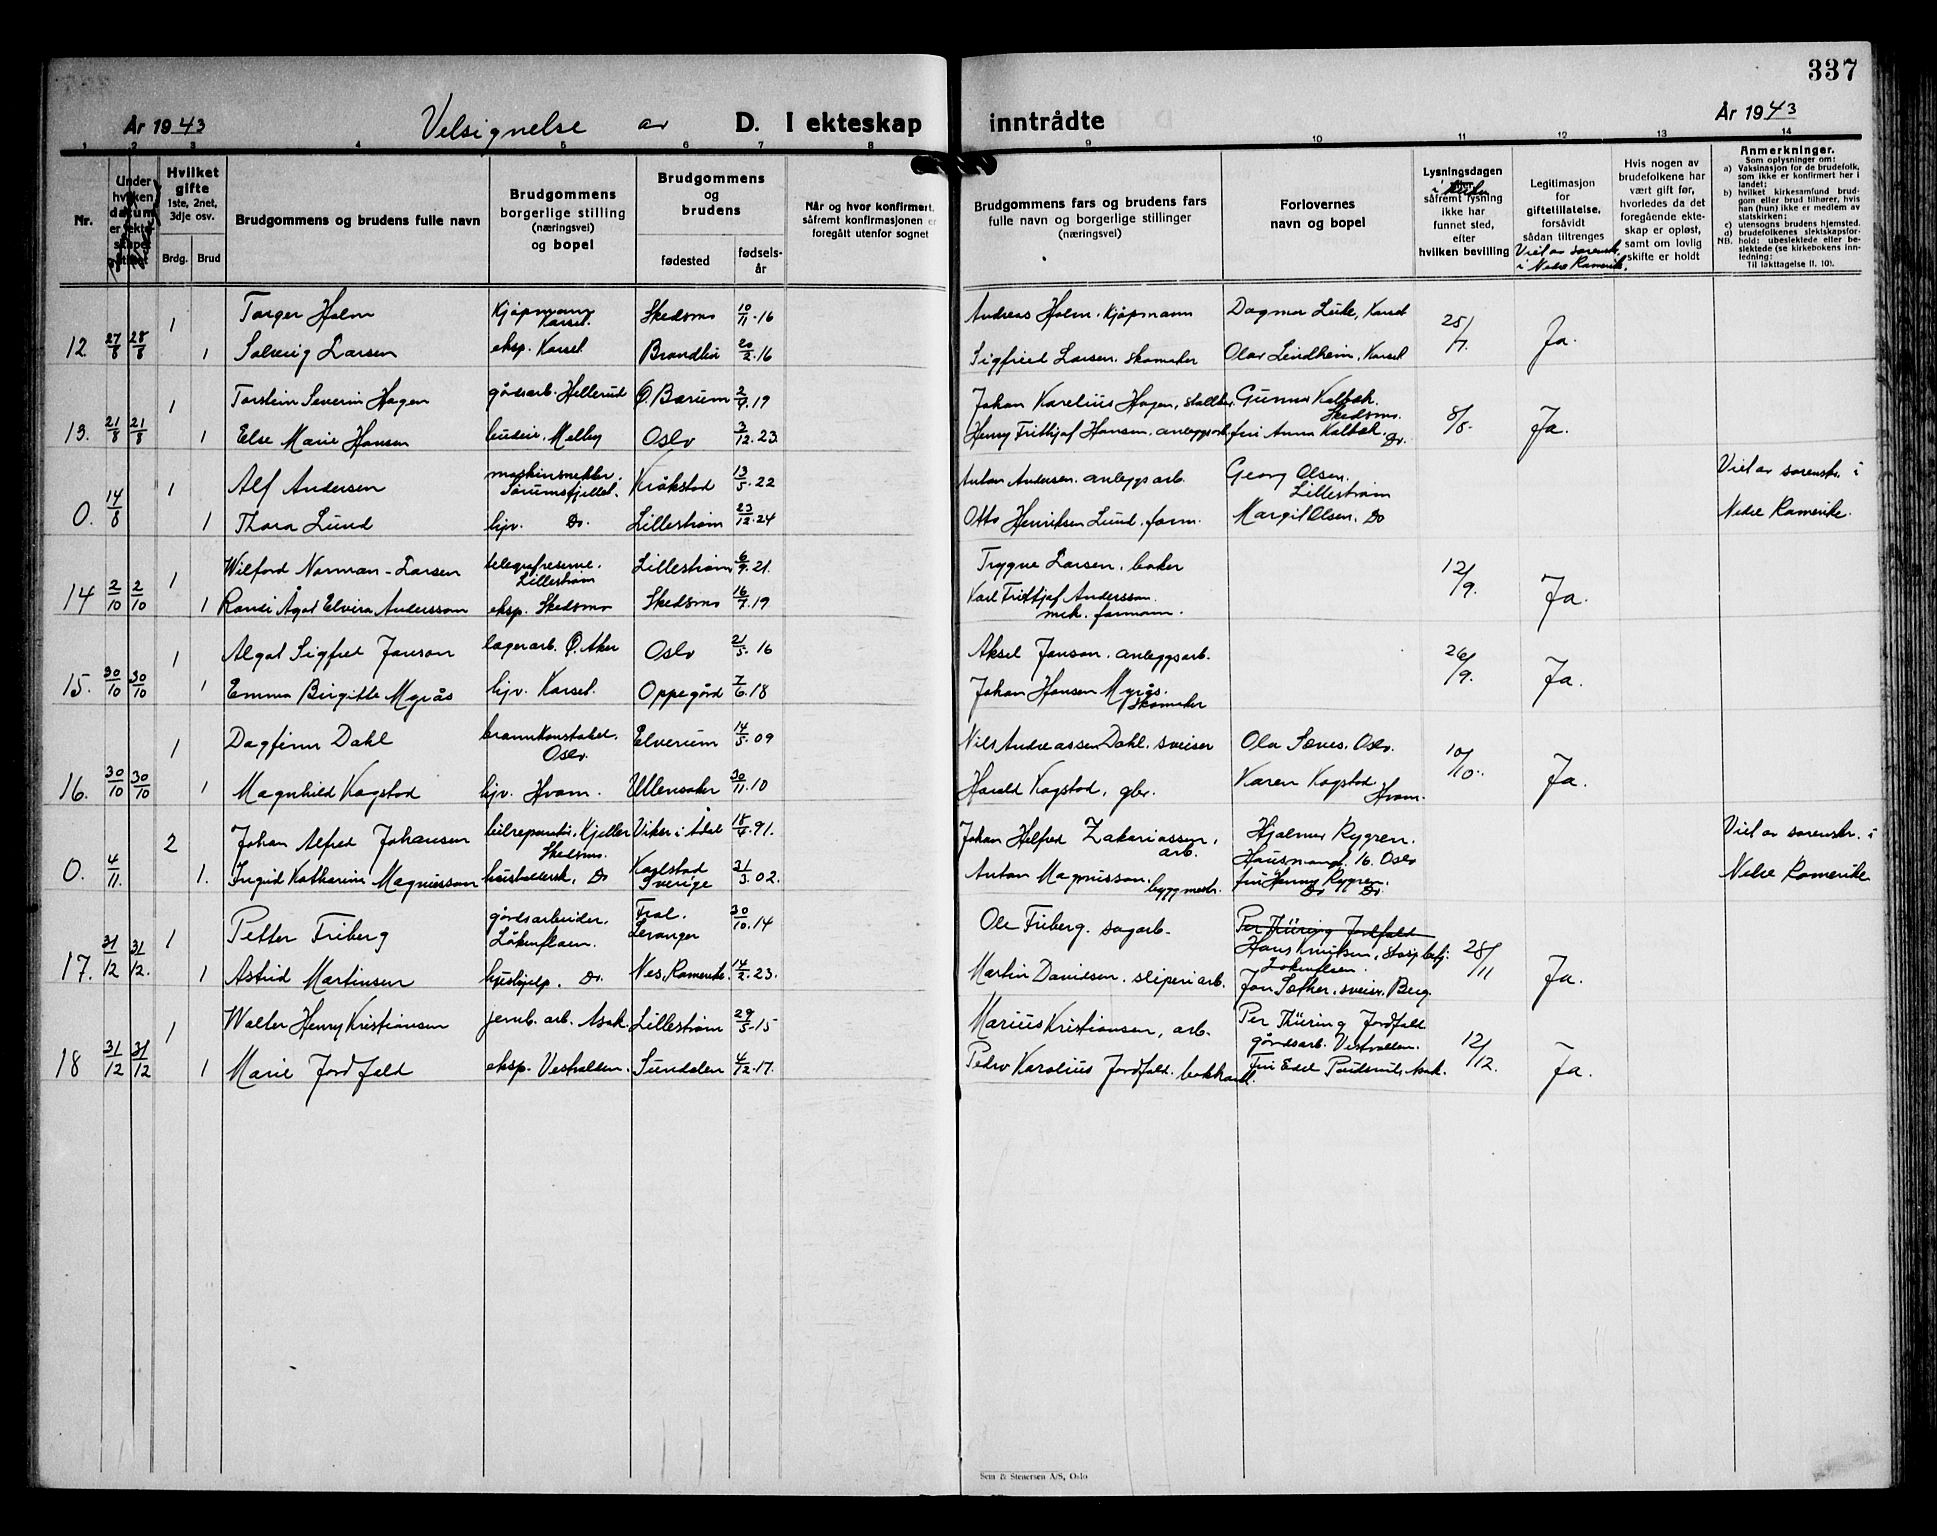 337
År 1943 Velsignelse av D. I ekteskap inntrådte År 1943
1 2 3 4 5 6 7 8 9 10 11 12 13 14
Nr.
Under hvilken datum er ekteskapet stiftet
Hvilket gifte
1ste, 2net, 3dje osv.
Brdg. Brud
Brudgommens og brudens fulle navn
Brudgommens borgerlige stilling (næringsvei) og bopel
Brudgommens og brudens
fødested
fødsels-år
Når og hvor konfirmert, såfremt konfirmasjonen er foregått utenfor sognet
Brudgommens fars og brudens fars fulle navn og borgerlige stillinger (næringsvei)
Forlovernes navn og bopel
Lysningsdagen
såfremt lysning ikke har funnet sted, efter hvilken bevilling
Legitimasjon for giftetillatelse, forsåvidt sådan tiltrenges
Viet av sorenskr. i Nedre Romerik.
Hvis nogen av brudefolkene har vært gift før, hvorledes da det foregående ekteskap er opløst, samt om lovlig skifte er holdt
Anmerkninger.
Som oplysninger om:
a) Vaksinasjon for de brudefolk, som ikke er konfirmert her i landet;
b) hvilket kirkesamfund brudgom eller brud tilhører, hvis han (hun) ikke er medlem av statskirken;
c) utensogns brudens hjemsted.
d) brudefolkenes slektskapsforhold: ubeslektede eller beslektede (se kirkebokens innledning:
NB. Til iakttagelse (l. 10).
Torger Holm Kjøpmann Karsel. Skedsmo 10/11-16 Andreas Holm. Kjøpmann Dagmar Lute, Karsel
12 27/8 28/8 1 25/7. Ja.
1 Solveig Larsen eksp. Karsel. Brandbu 20/2-16 Sigfried Larsen. Skomaker Olav Lindheim, Karsel
1 Torstein Severin Hagen gårdsarb. Hellerud Ø. Bærum 2/9.19 Johan Karelius Hagen, Gunnar Kalbæk. Skedsmo.
13. 21/8 21/8 1 Else Marie Hansen budeie. Melby Oslo 3/12.23. Henry Frithjof Hansen. anleggsarb. fru Anna Kalbæk. Do. 8/8- Ja.
1 Alf Andersen maskinsnekker. Sørumsfjellet. Kråkstad 13/5-22 Anton Andersen. anleggsarb. Georg Olsen. Lillestrøm Viet av sorenskr. i
0. 14/8 1 Thora Lund hjv. Do. Lillestrøm 23/12-24 Otto Henriksen Lund. form. Margit Olsen. Do Nedre Romerike.
1 Wilford Norman-Larsen telegrafreserve. Lillestrøm Lillestrøm 6/9-21. Trygve Larsen. baker 12/9. Ja.
14 2/10 2/10 1 Randi Ågot Elvira Andersson eksp. Skedsmo Skedsmo 16/7.19 Karl Frithjof Andersson. mek. formann.
1 Algot Sigfred Janson lagerarb. Ø. Aker Oslo 21/5-16 Aksel Janson. anleggsarb. 26/9. Ja.
15. 30/10 30/10 1 Emma Birgitte Myrås hjv. Karsel. Oppegård 7/6.18 Johan Hansen Myrås. Skomaker
1 Dagfinn Dahl brannkonstabel. Oslo. Elverum 14/5-09 Nils Andreassen Dahl. sveiser Ola Sæves. Oslo. 10/10. Ja.
16. 30/10 30/10 1 Magnhild Kogstad hjv. Hvam. Ullensaker 30/11.10 Harald Kogstad, gbr. Karen Kogstad Hvam.
2 Johan Alfred Johansen bilreparatør, Kjeller Skedsmo. Viker i Ådal 18/4.91. Johan Helfred Zakariassen, arb. Hjalmar Rygren. Viet av sorenskr. i
Hausmansg. 16. Oslo
0. 4/11. 1. Ingrid Katharina Magnusson husholdersk. Do Karlstad Sverige 31/3.02. Anton Magnusson. byggmestr. fru Henny Rygren. Do Do. Nedre Romerike
1 Petter Friberg gårdsarbeider. Låkenflaen. Frol. Levanger 30/10.14 Ole Friberg. sagarb. Per Thüring Jordfald
Hans Knutsen, Låkenflaen.
17. 31/12 31/12. 1 Astrid Martinsen hushjelp. Do. Nes, Romerike. 14/2.23. Martin Davidsen. sliperiarb. Jon Sæther. sveiser. Berg. 28/11 Ja.
1 Walter Henry Kristiansen jernb. arb. Asak. Lillestrøm 29/5-15 Marius Kristiansen, arb. Per Thüring Jordfald gårdsarb. Vestvollen. 12/12. Ja.
18 31/12 31/12 1 Marie Jordfald eksp. Vestvollen. Sundalen 4/12-17. Pedro Karolius Jordfald. bokhandl. Fru Edel Asak.
Sem & Stenersen A/S, Oslo